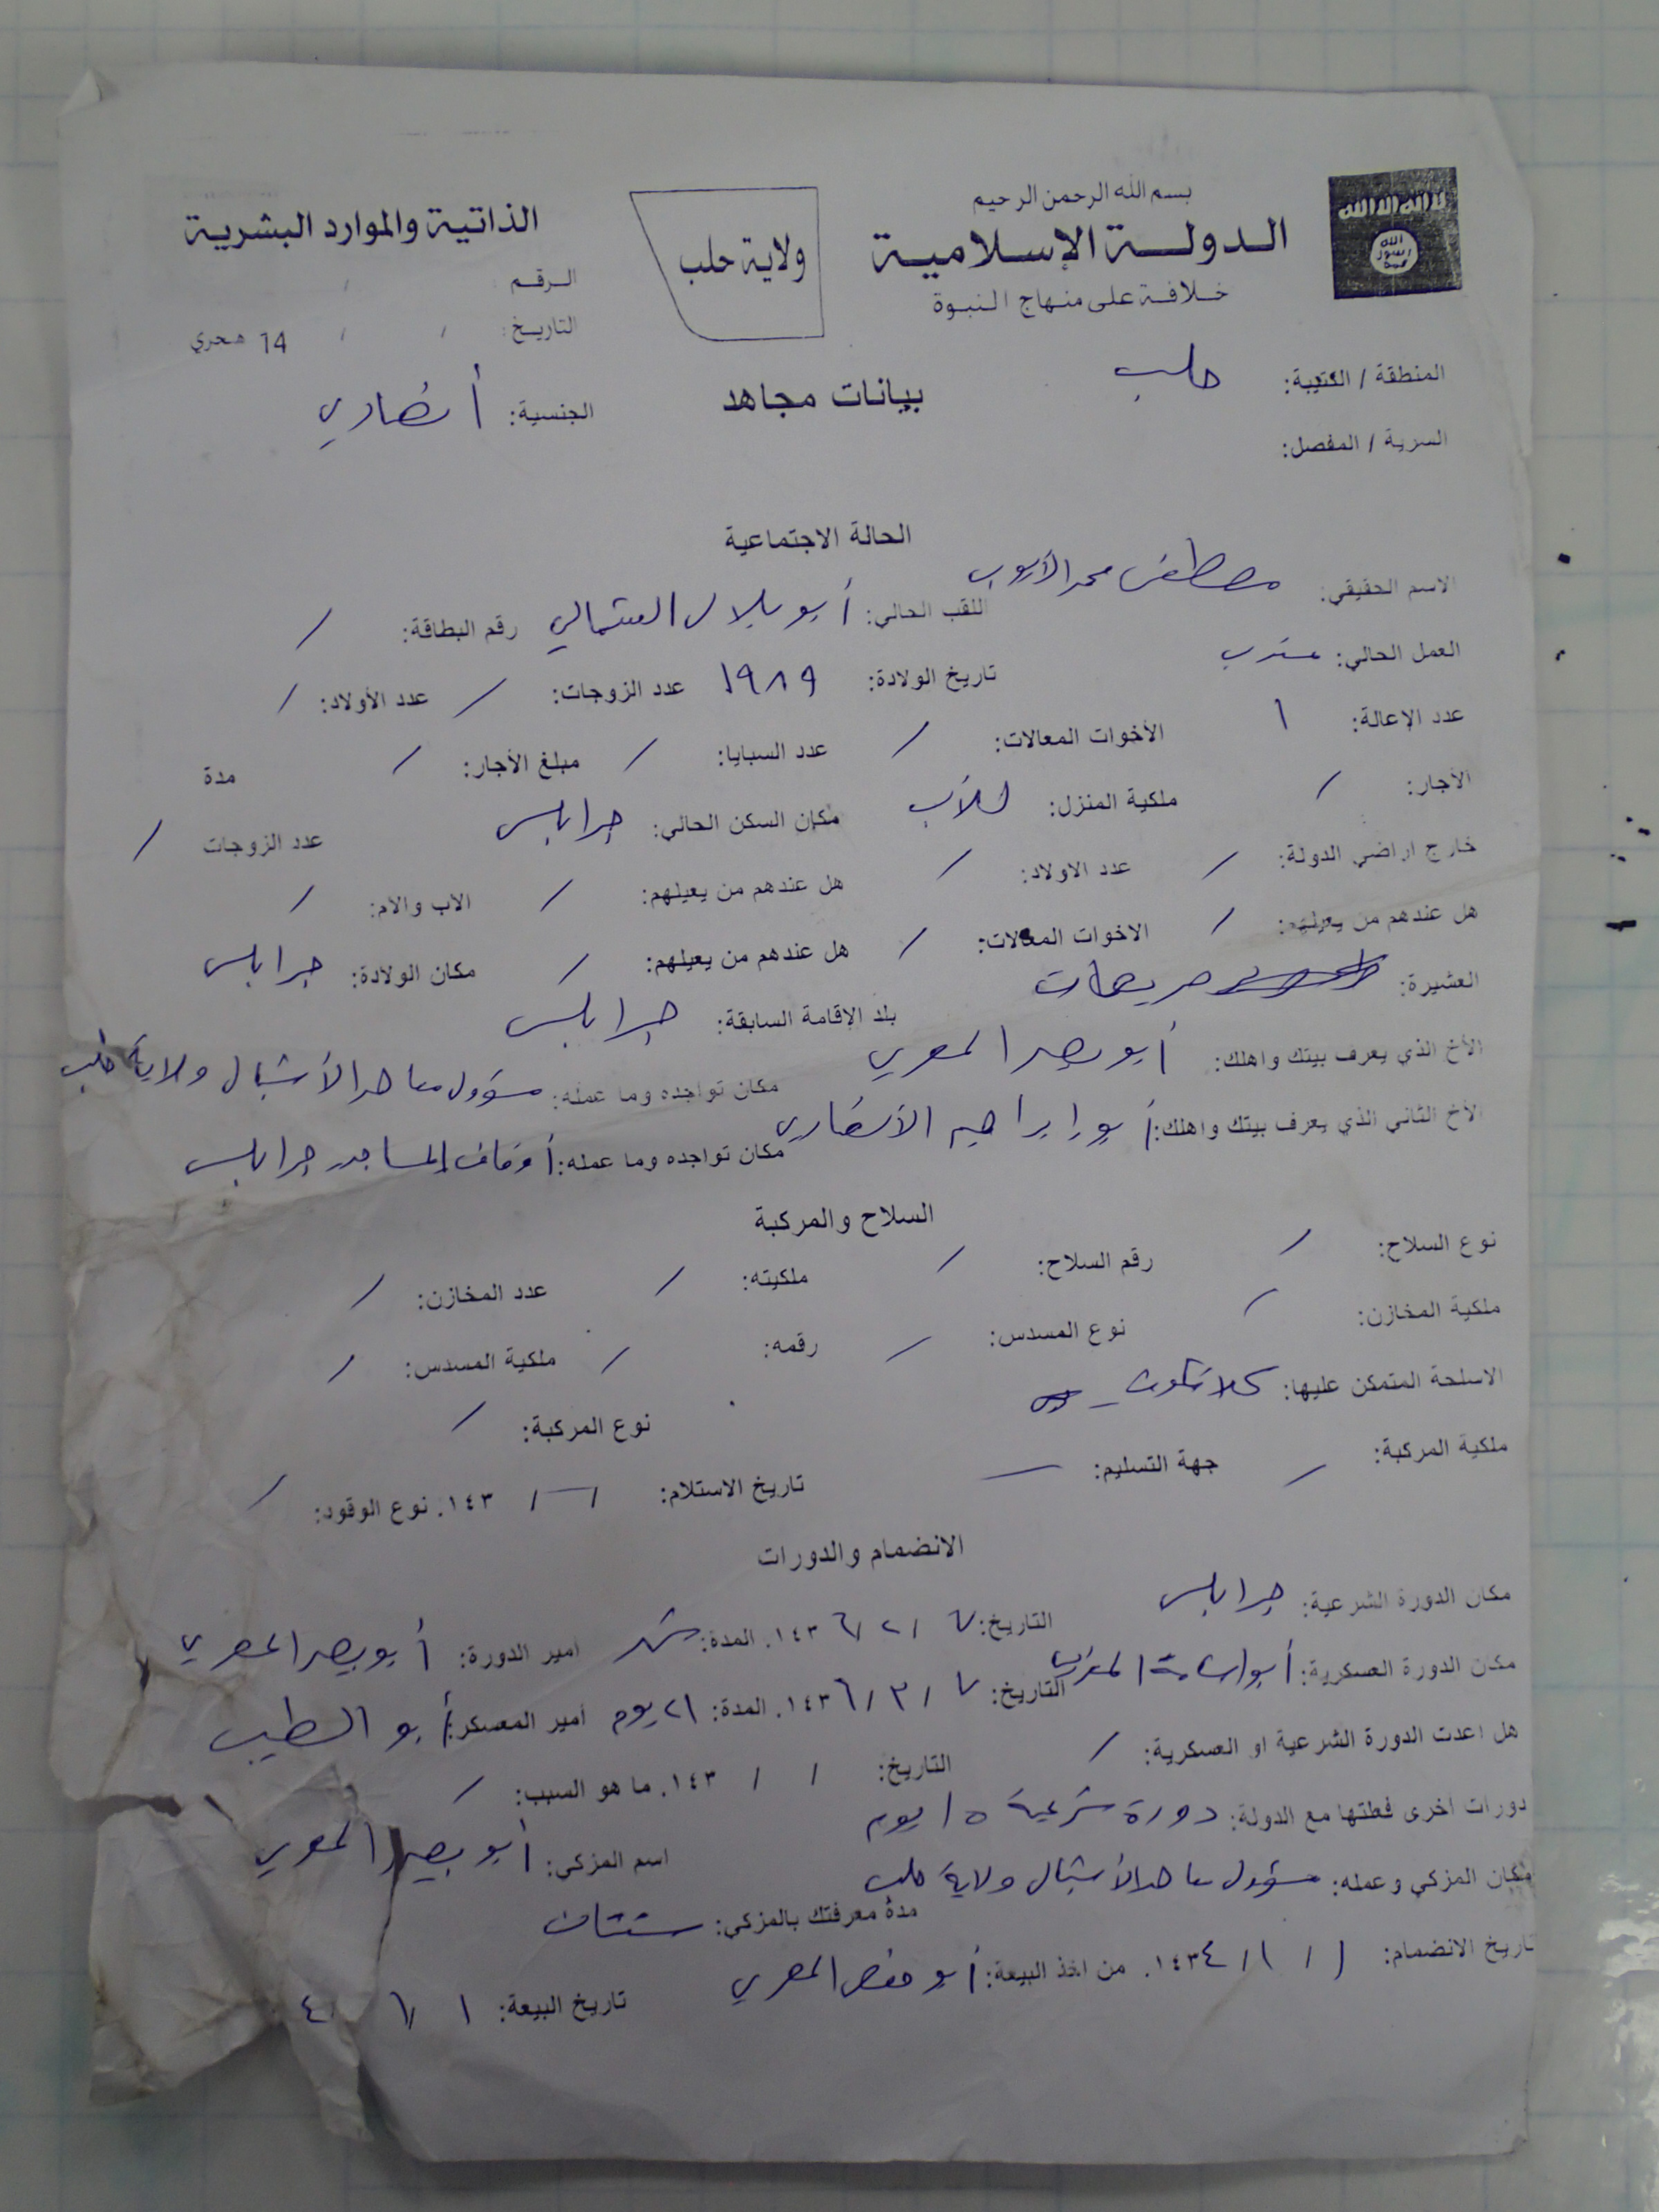 بسم الله الرحمن الرحيم
الدولة الإسلامية
خلافة على منهاج النبوة
ولاية حلب
الذاتية والموارد البشرية
الرقم :
التاريخ : / / 14 هجري
المنطقة / الكتيبة: حلب
بيانات مجاهد
الجنسية: أنصاري
السرية / المفصل:
الحالة الاجتماعية
الاسم الحقيقي: مصطفى محمد الأيوب اللقب الحالي: أبو بلال العثمالي رقم البطاقة: /
العمل الحالي: متدرب تاريخ الولادة: ١٩٨٩ عدد الزوجات: / عدد الأولاد: /
عدد الإعالة: ١ الأخوات المعالات: / عدد السبايا: / مبلغ الأجار: / مدة
الأجار: / ملكية المنزل: للأب مكان السكن الحالي: جرابلس عدد الزوجات /
خارج اراضي الدولة: / عدد الاولاد: / هل عندهم من يعيلهم: / الاب والام: /
هل عندهم من يعيلهم: / الاخوات المعالات: / هل عندهم من يعيلهم: / مكان الولادة: جرابلس
العشيرة: بلد الإقامة السابقة: جرابلس
الأخ الذي يعرف بيتك واهلك: أبو بصير المصري مكان تواجده وما عمله: مسؤول معاهد الأشبال ولاية حلب
الأخ الثاني الذي يعرف بيتك واهلك: أبو إبراهيم الأنصاري مكان تواجده وما عمله: أوقاف المساجد جرابلس
السلاح والمركبة
نوع السلاح: / رقم السلاح: / ملكيته: / عدد المخازن: /
ملكية المخازن: / نوع المسدس: / رقمه: / ملكية المسدس: /
الاسلحة المتمكن عليها: كلاشنكوف نوع المركبة: /
ملكية المركبة: / جهة التسليم: — تاريخ الاستلام: / — / ١٤٣. نوع الوقود: /
الانضمام والدورات
مكان الدورة الشرعية: جرابلس التاريخ: ٧ / ٢ / ١٤٣٦. المدة: شهر أمير الدورة: أبو بصير المصري
مكان الدورة العسكرية: أبو أسامة المغربي التاريخ: ٧ / ٣ / ١٤٣٦. المدة: ٢١ يوم أمير المعسكر: أبو الطيب
هل اعدت الدورة الشرعية او العسكرية: / التاريخ: / / ١٤٣. ما هو السبب: /
دورات اخرى فعلتها مع الدولة: دورة شرعية ١٥ يوم اسم المزكي: أبو بصير المصري
مكان المزكي وعمله: مسؤول معاهد الأشبال ولاية حلب مدة معرفتك بالمزكي: سنتان
تاريخ الانضمام: ١ / ١ / ١٤٣٤. من اخذ البيعة: أبو حفص المصري تاريخ البيعة: ١